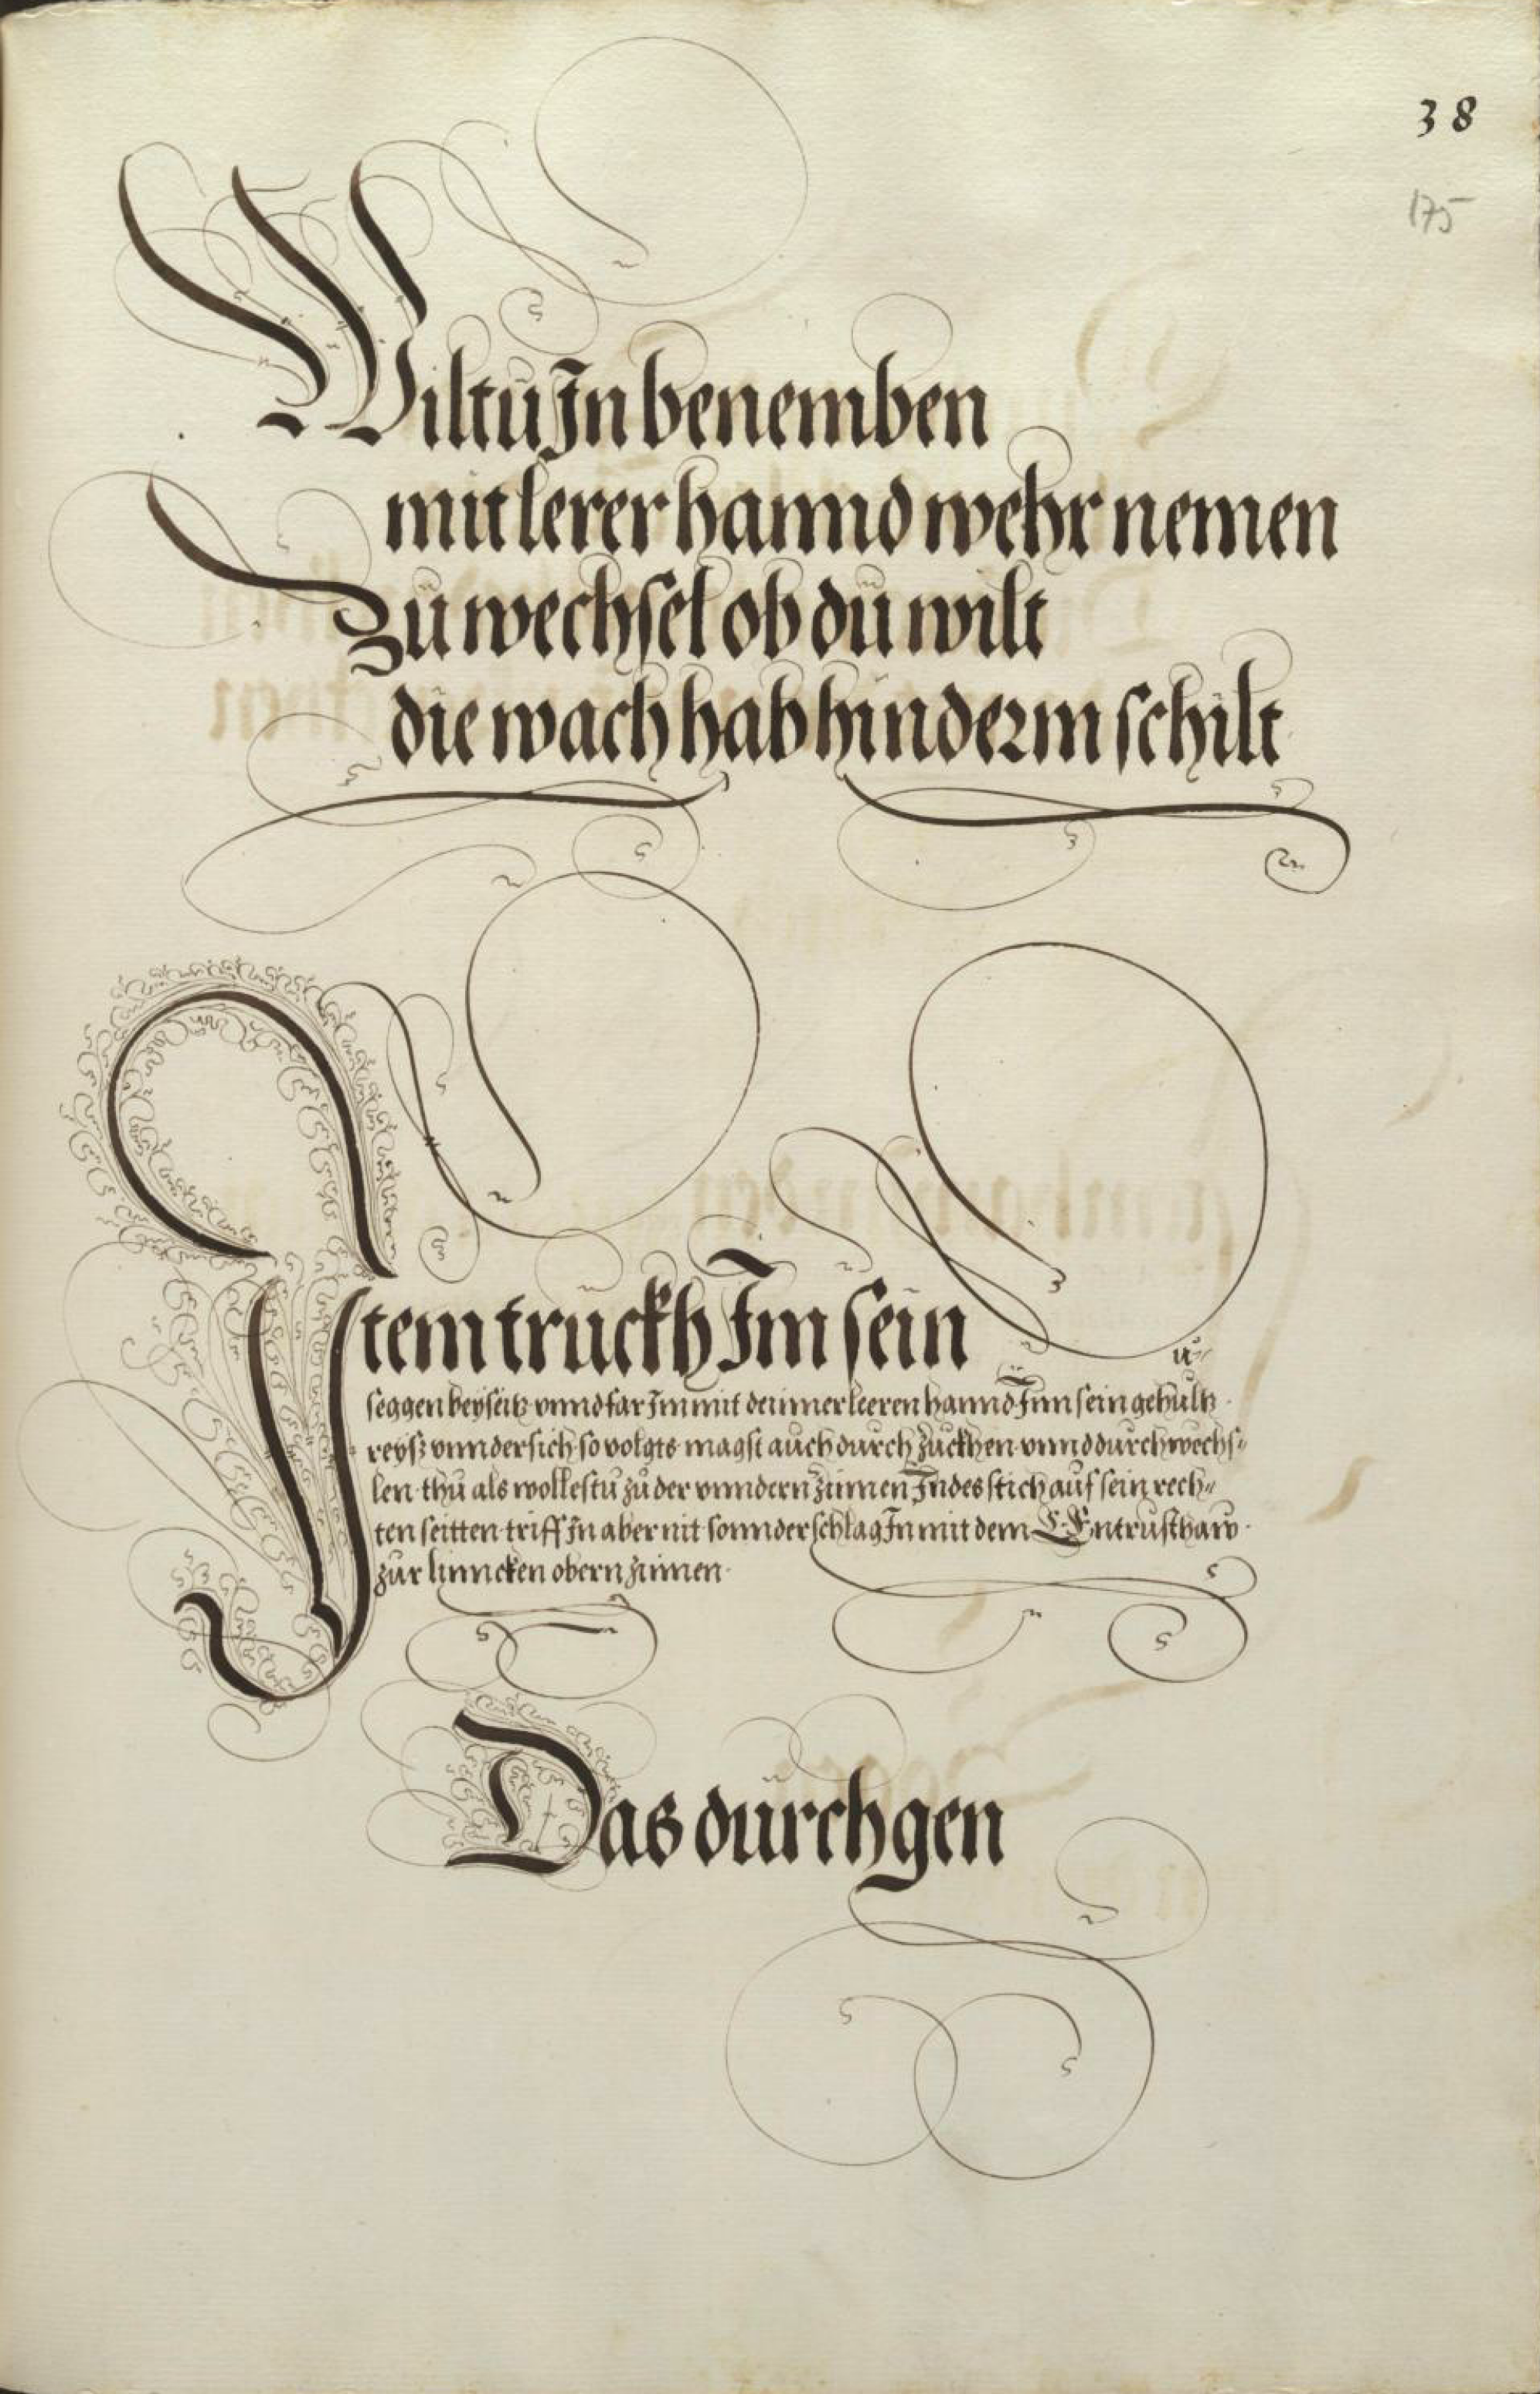 38
175
Wiltu Jn benemben
mit lerer hannd wehr nemen
Zu wechsel ob du wilt
die wach hab hinderm schilt
Jtem truckh Im sein
seggen beyseitz vnnd far Jm mit deinner leeren hannd Jnn sein gehultz
reysz vnndersich so volgts magst auch durch zuckhen vnnd durchwechs=
len thu als wollestu zu der vnndern zinnen Jndes stich auf sein rech=
ten seitten triff Jn aber nit sonnder schlag Jn mit dem E. Entrusthaw
zur linncken obern zinnen
Das durchgen